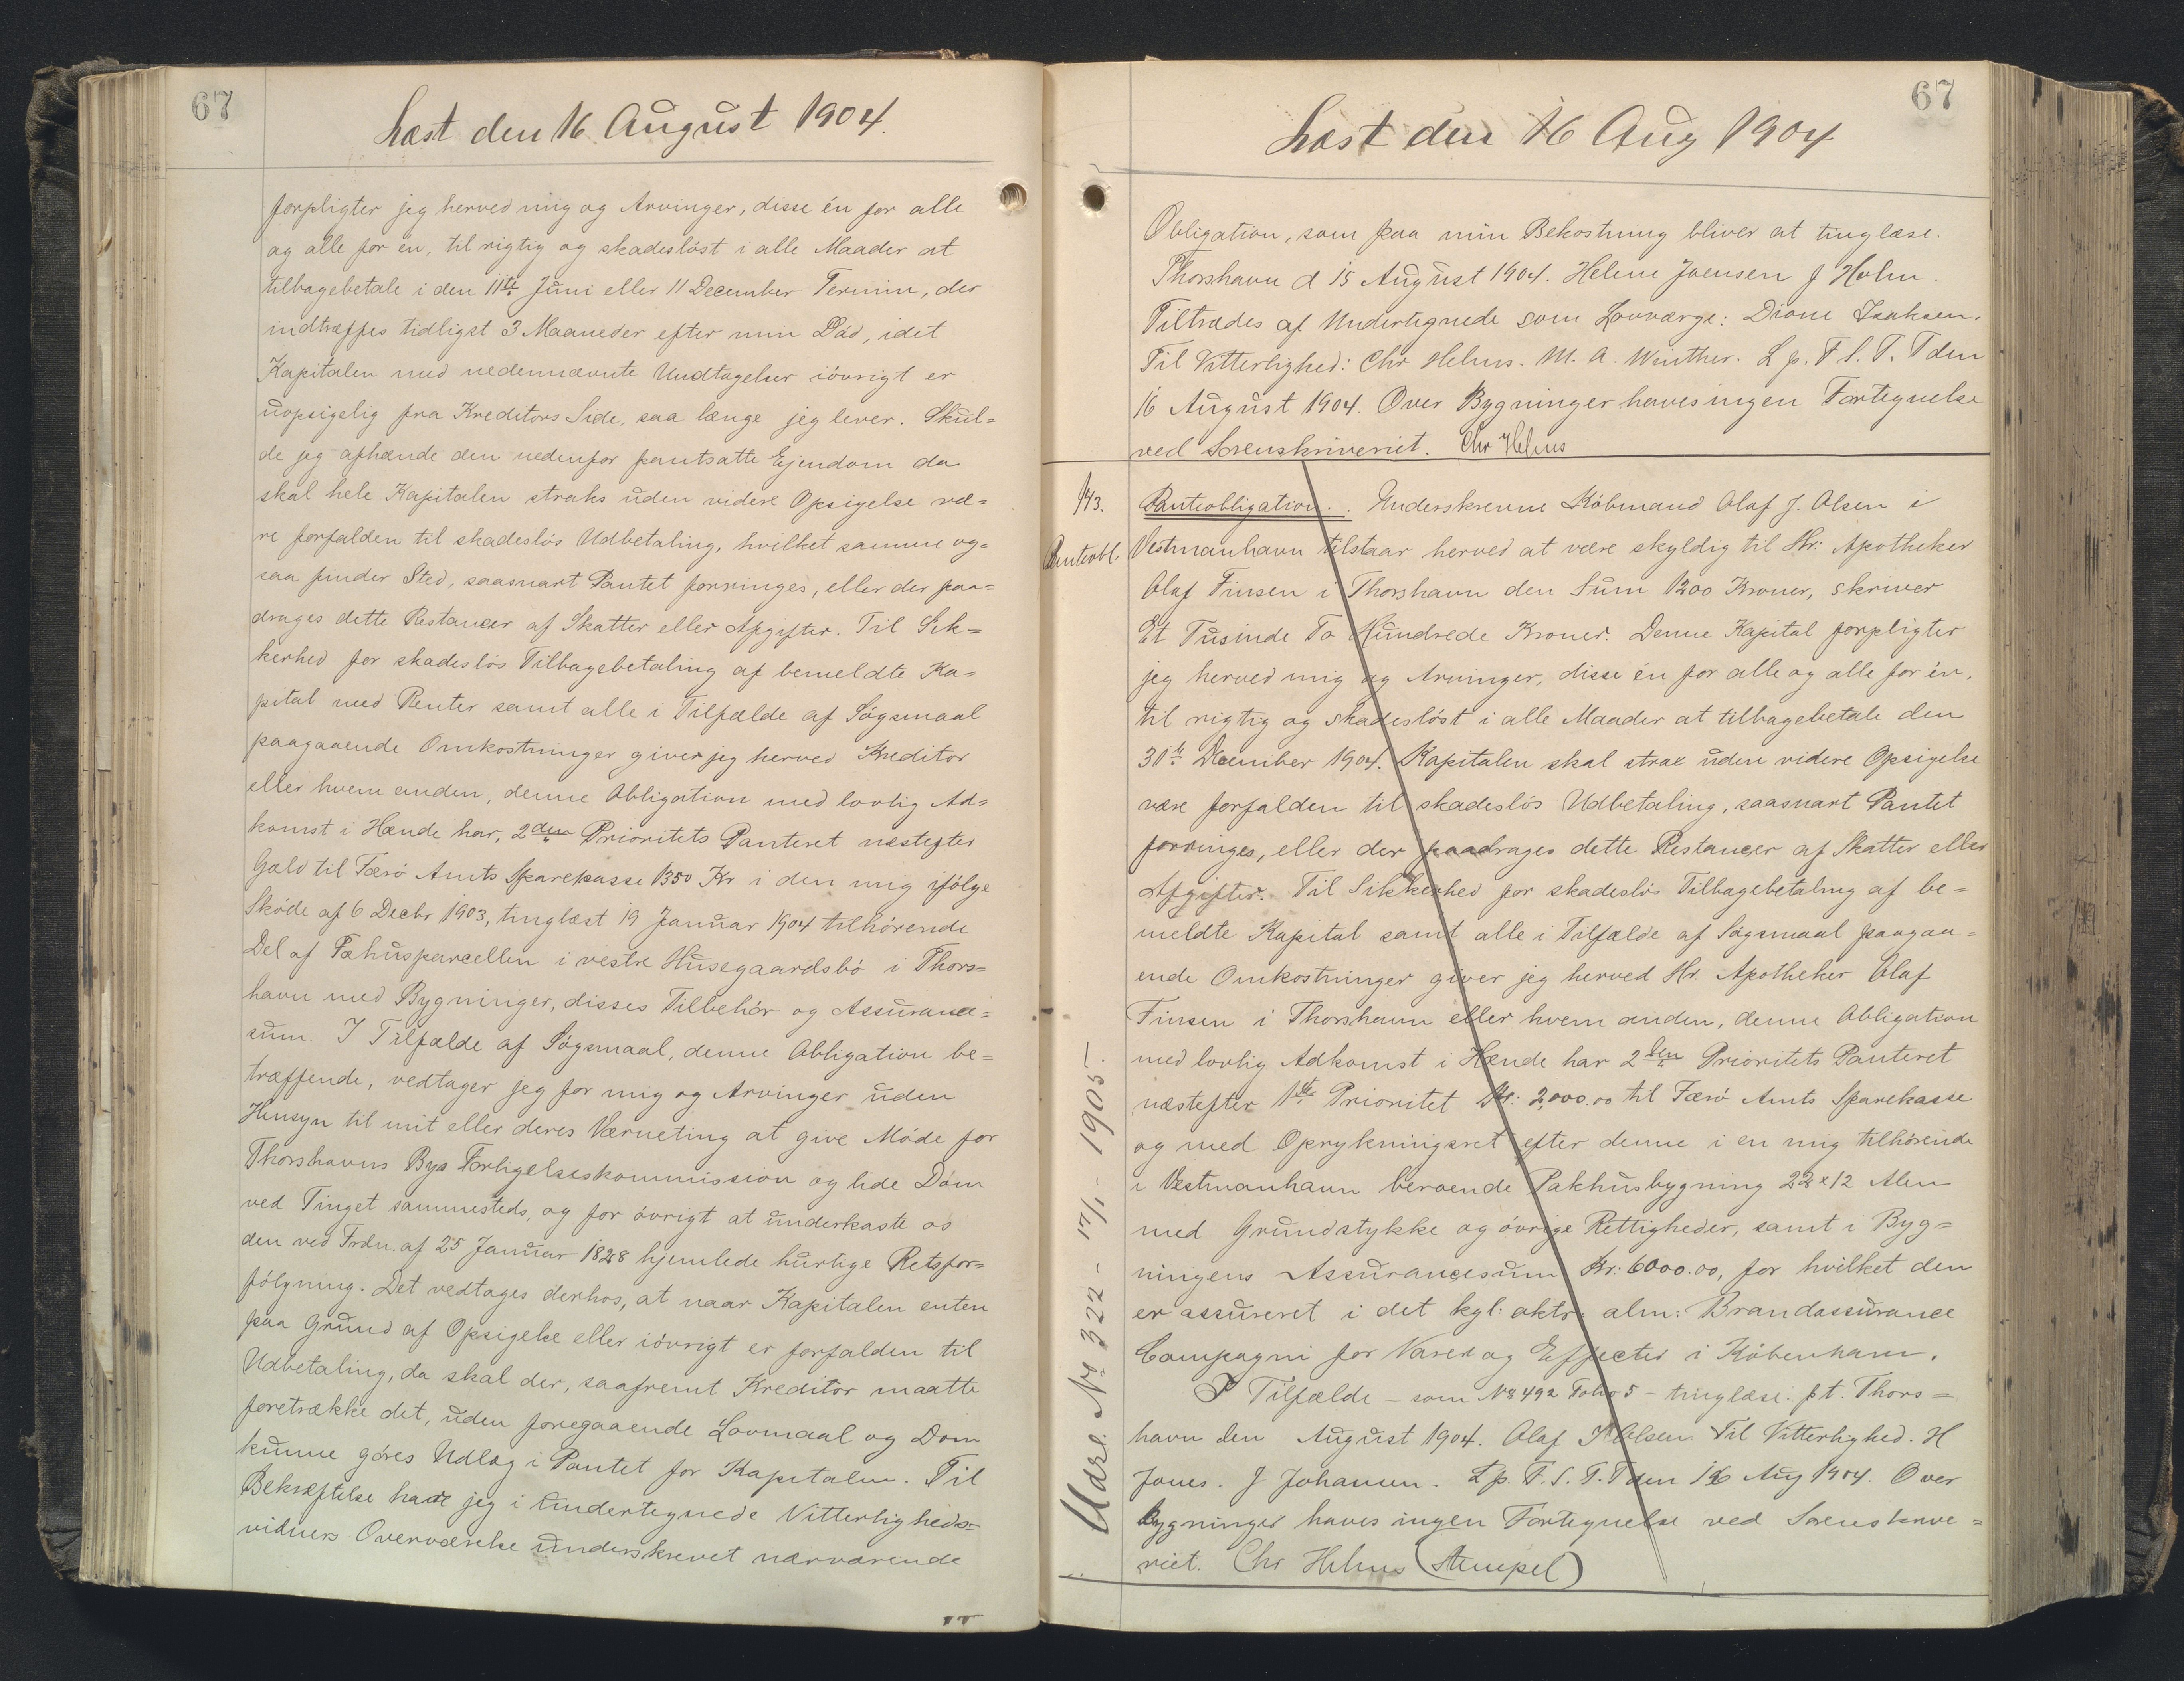 67
Læst den 16 August 1904.
forpligter jeg herved mig og Arvinger, disse én for alle
og alle for én, til rigtig og skadesløst i alle Maader at
tilbagebetale i den 11te Juni eller 11 December Termin, der
indtræffes tidligst 3 Maaneder efter min Død, idet
Kapitalen med nedennævnte Undtagelser iøvrigt er
uopsigelig fra Kreditors Side, saa længe jeg lever. Skul=
de jeg afhænde den nedenfor pantsatte Ejendom da
skal hele Kapitalen straks uden videre Opsigelse væ=
re forfalden til skadesløs Udbetaling, hvilket samme og=
saa finder Sted, saasnart Pantet forringes, eller der paa=
drages dette Restancer af Skatter eller Afgifter. Til Sik=
kerhed for skadesløs Tilbagebetaling af bemeldte Ka=
pital med Renter samt alle i Tilfælde af Søgsmaal
paagaaende Omkostninger giver jeg herved Kreditor
eller hvem anden, denne Obligation med lovlig Ad=
komst i Hænde har, 2den Prioritets Panteret næstefter
Gæld til Færø Amts Sparekasse 1350 Kr i den mig ifølge
Skøde af 6 Decbr 1903, tinglæst 19 Januar 1904 tilhørende
Del af Fæhusparcellen i vestre Husegaardsbø i Thors=
havn med Bygninger, disses Tilbehør og Assurance=
sum. I Tilfælde af Søgsmaal, denne Obligation be=
træffende, vedtager jeg for mig og Arvinger uden
Hensyn til mit eller deres Værneting at give Møde for
Thorshavns Bys Forligelseskommission og lide Dom
ved Tinget sammesteds, og for øvrigt at underkaste os
den ved Frdn. af 25 Januar 1828 hjemlede hurtige Retsfor=
følgning. Det vedtages derhos, at naar Kapitalen enten
paa Grund af Opsigelse eller iøvrigt er forfalden til
Udbetaling, da skal der, saafremt Kreditor maatte
foretrække det, uden foregaaende Lovmaal og Dom
kunne gøres Udlæg i Pantet for Kapitalen. Til
Bekræftelse har jeg i Undertegnede Vitterligheds=
vidners Overværelse underskrevet nærværende
67
Læst den 16 Aug 1904
Obligation, som paa min Bekostning bliver at tinglæse.
Thorshavn d 15 August 1904. Helene Joensen f Holm.
Tiltrædes af Undertegnede som Lovværge: Dione Isaksen.
Til Vitterlighed: Chr Helms. M. A. Winther. L p. F. S. T. T den
16 August 1904. Over Bygninger haves ingen Fortegnelse
ved Sorenskriveriet. Chr Helms
143.
Panteobl.
Panteobligation. Underskrevne Købmand Olaf J. Olsen i
Vestmanhavn tilstaar herved at være skyldig til Hr: Apotheker
Olaf Finsen i Thorshavn den Sum 1200 Kroner, skriver
Et Tusinde To Hundrede Kroner. Denne Kapital forpligter
jeg herved mig og Arvinger, disse én for alle og alle for én,
til rigtig og skadesløst i alle Maader at tilbagebetale den
30te December 1904. Kapitalen skal strax uden videre Opsigelse
være forfalden til skadesløs Udbetaling, saasnart Pantet
forringes, eller der paadrages dette Restancer af Skatter eller
Afgifter. Til Sikkerhed for skadesløs Tilbagebetaling af be=
meldte Kapital samt alle i Tilfælde af Søgsmaal paagaa=
ende Omkostninger giver jeg herved Hr. Apotheker Olaf
Finsen i Thorshavn eller hvem anden, denne Obligation
med lovlig Adkomst i Hænde har 2den Prioritets Panteret
næstefter 1ste Prioritet Kr: 2,000.00 til Færø Amts Sparekasse
og med Oprykningsret efter denne i en mig tilhørende
i Vestmanhavn beroende Pakhusbygning 22x12 Alen
med Grundstykke og øvrige Rettigheder, samt i Byg=
ningens Assurancesum Kr: 6000.00, for hvilket den
er assureret i det kgl: oktr: alm: Brandassurance
Compagni for Varer og Effecter i København.
I Tilfælde – som No 492 Folio 5 – tinglæse. pt. Thors=
havn den August 1904. Olaf J Olsen Til Vitterlighed. H
Jones. J Johansen. L p. F. S. T. T den 16 Aug 1904. Over
Bygninger haves ingen Fortegnelse ved Sorenskrive=
riet. Chr Helms (Stempel)
Udsl. No 322 - 17/1 - 1905.